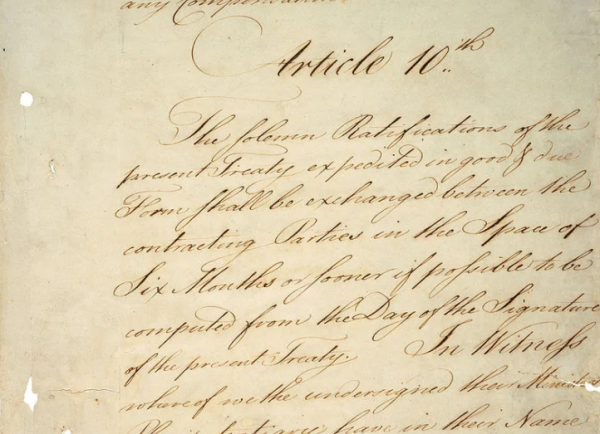 any Compensation.
Article 10.th
The solemn Ratifications of the
present Treaty expedited in good & due
Form shall be exchanged between the
contracting Parties in the Space of
Six Months or sooner if possible to be
computed from the Day of the Signature
of the present Treaty. In Witness
whereof we the undersigned their Ministers
Plenipotentiary have in their Name